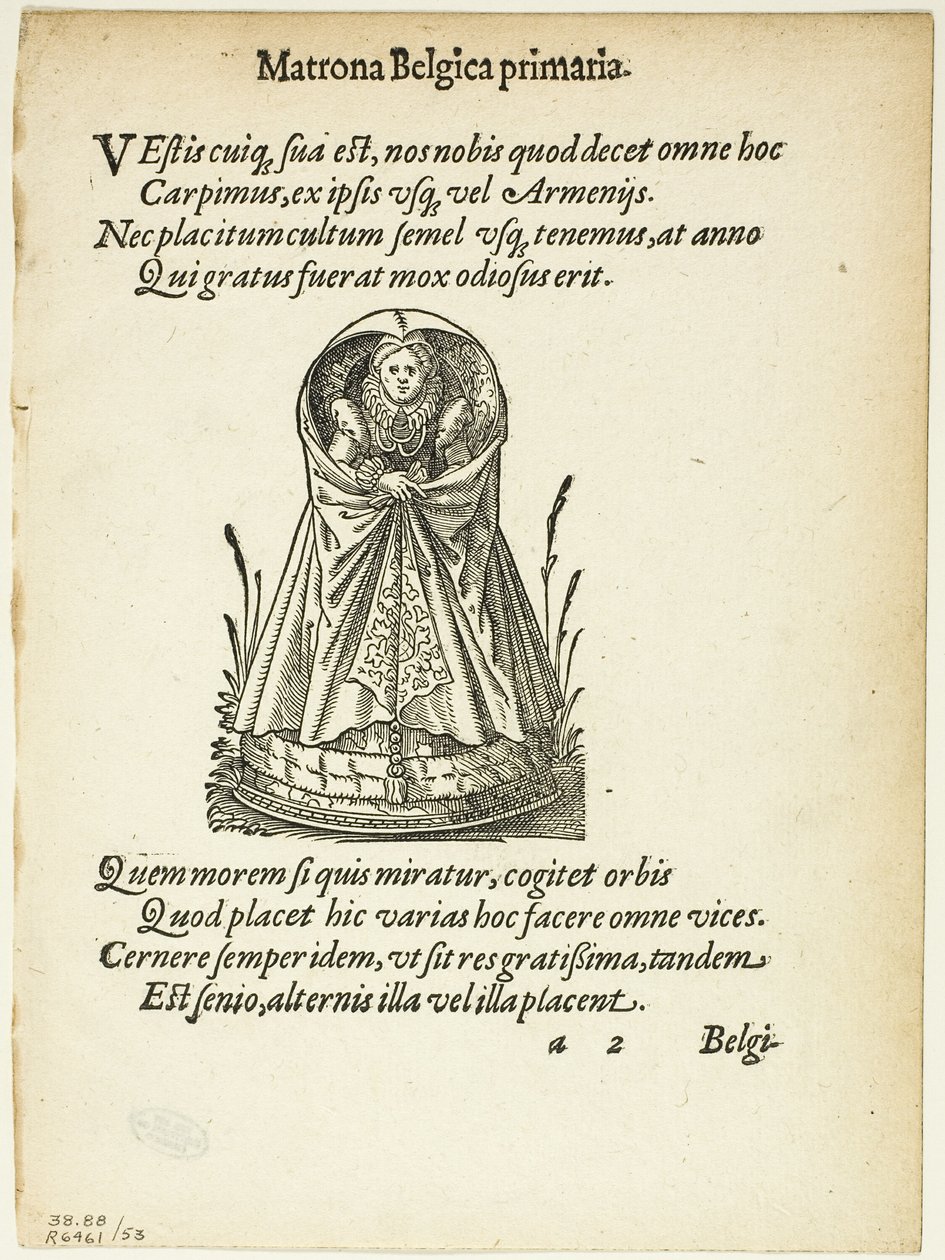 Matrona Belgica primaria.
VEſtis cuiqꝫ ſua est, nos nobis quod decet omne hoc
Carpimus, ex ipſis vſqꝫ vel Armenijs.
Nec placitum cultum ſemel vſqꝫ tenemus, at anno
Qui gratus fuerat mox odioſus erit.
Quem morem ſi quis miratur, cogitet orbis
Quod placet hic varias hoc facere omne vices.
Cernere ſemper idem, vt ſit res gratißima, tandem
Est ſenio, alternis illa vel illa placent.
a 2 Belgi-
38.88
R6461/53